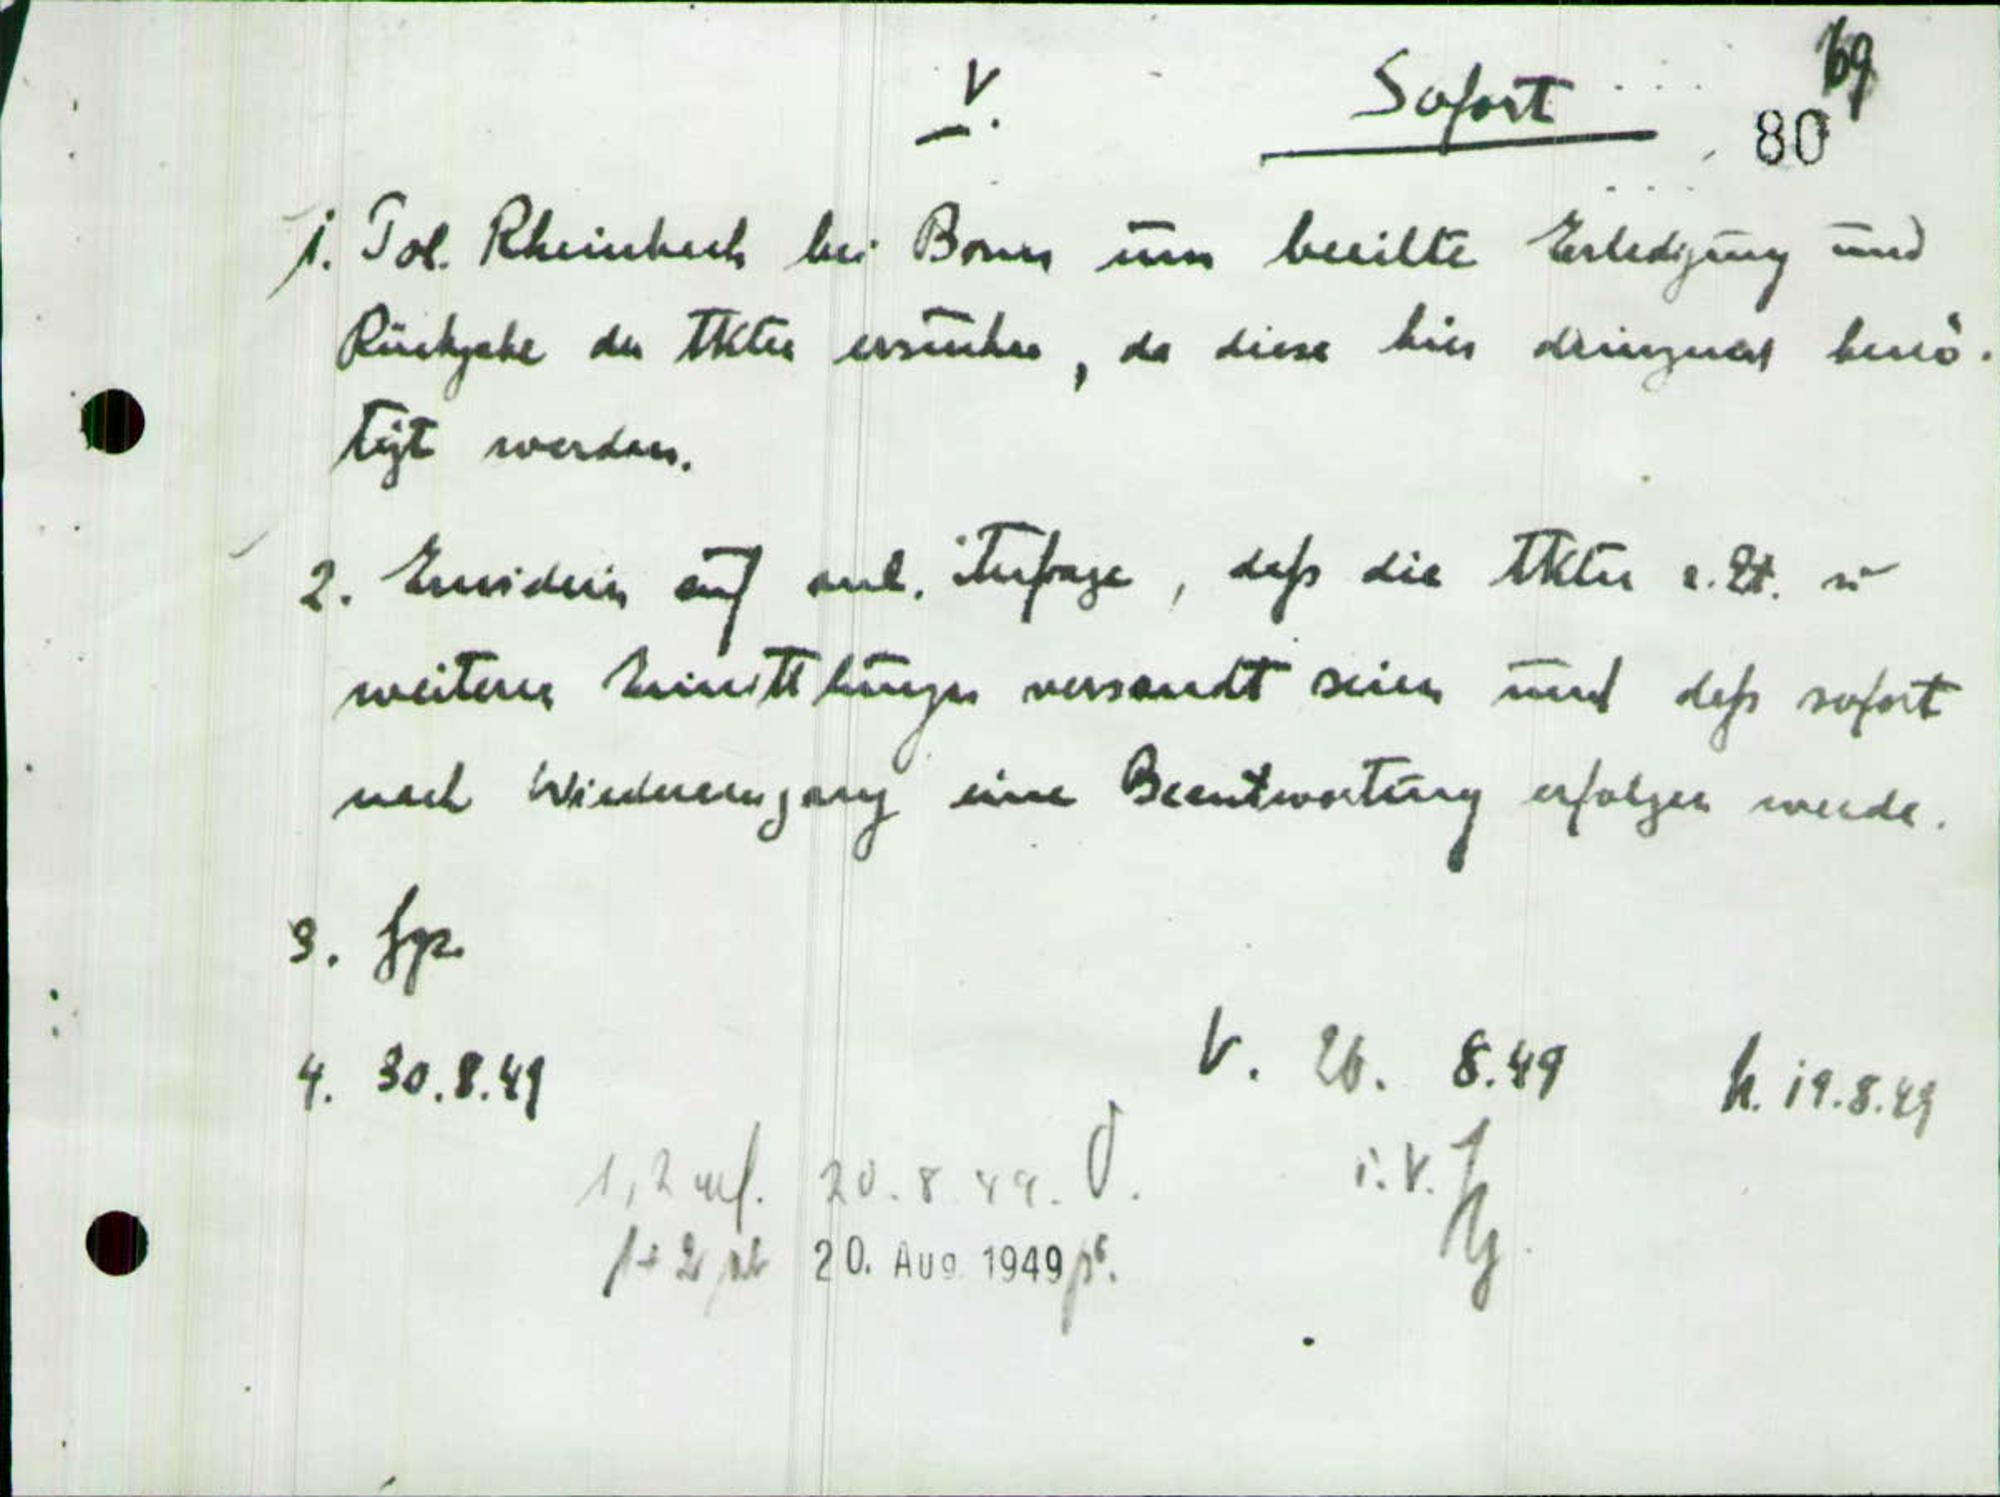 69
V. Sofort
80
1. Pol. Rheinbach bei Bonn um beeilte Erledigung und
Rückgabe der Akten ersuchen, da diese hier dringend benö-
tigt werden.
2. Erwidern auf anl. Anfrage, daß die Akten z. Zt. zu
weiteren Ermittlungen versandt seien und daß sofort
nach Wiedereingang eine Beantwortung erfolgen werde.
3.
4. 30.8.49
V. 20. 8.49
19.8.49
1, 2 20.8.49.
i.V.
1 + 2 20. Aug 1949